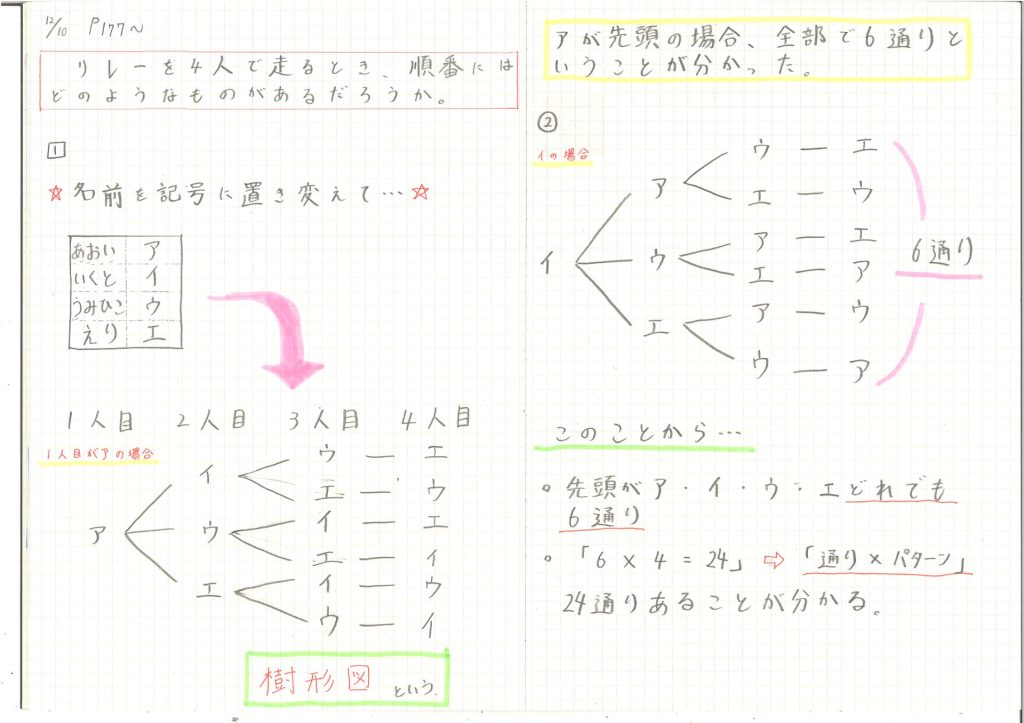 12/10 P177〜
リレーを4人で走るとき、順番には
どのようなものがあるだろうか。
1
☆名前を記号に置き変えて…☆
あおい ア
いくと イ
うみひこ ウ
えり エ
1人目 2人目 3人目 4人目
1人目がアの場合
ウ ー エ
イ
エ ー ウ
イ ー エ
ア ウ
エ ー イ
イ ー ウ
エ
ウ ー イ
樹形図 という。
アが先頭の場合、全部で6通りと
いうことが分かった。
②
イの場合
ウ ー エ
ア
エ ー ウ
ア ー エ
イ ウ 6通り
エ ー ア
ア ー ウ
エ
ウ ー ア
このことから…
。先頭がア・イ・ウ・エどれでも
6通り
。「6×4=24」⇨「通り×パターン」
24通りあることが分かる。